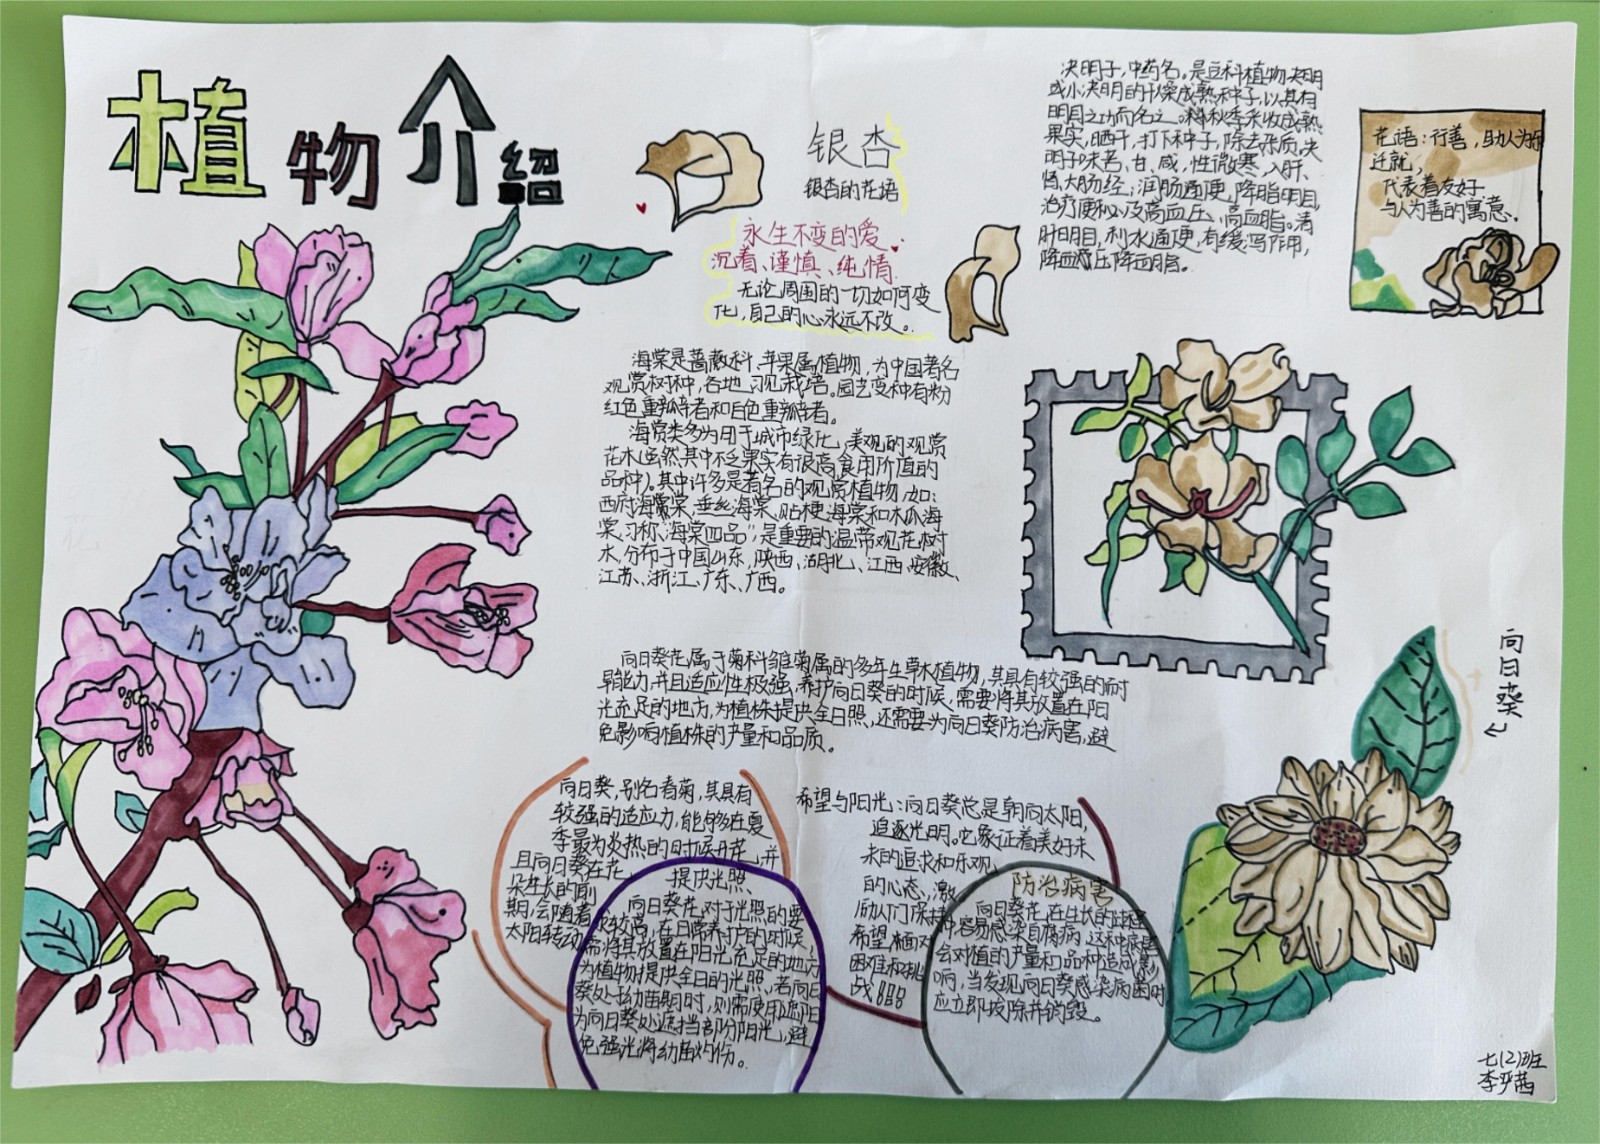 植物介绍
银杏
银杏的花语
永生不变的爱
沉着、谨慎、纯情
无论周围的一切如何变
化,自己的心永远不改。
决明子,中药名。是豆科植物决明
或小决明的干燥成熟种子,以其有
明目之功而名之。秋季采收成熟
果实,晒干,打下种子,除去杂质,决
明子味苦、甘、咸,性微寒,入肝、
肾、大肠经;润肠通便,降脂明目,
治疗便秘及高血压、高血脂。清
肝明目,利水通便,有缓泻作用,
降血压降血脂。
花语:行善,助人为乐
迁就,
代表着友好
与人为善的寓意。
海棠是蔷薇科、苹果属植物,为中国著名
观赏树种,各地习见栽培。园艺变种有粉
红色重瓣者和白色重瓣者。
海棠类多为用于城市绿化,美观的观赏
花木(当然其中不乏果实有很高食用价值的
品种)。其中许多是著名的观赏植物,如:
西府海棠、垂丝海棠、贴梗海棠和木瓜海
棠,习称“海棠四品”,是重要的温带观花树
木,分布于中国山东、陕西、湖北、江西、安徽、
江苏、浙江、广东、广西。
向日葵花属于菊科雏菊属的多年生草本植物,其具有较强的耐
旱能力,并且适应性极强,养护向日葵的时候,需要将其放置在阳
光充足的地方,为植株提供全日照,还需要为向日葵防治病害,避
免影响植株的产量和品质。
向日葵
向日葵,别名春菊,其具有
较强的适应力,能够在夏
季最为炎热的时候开花,并
且向日葵在花
朵生长的前
期,会随着
太阳转动
提供光照
向日葵花,对于光照的要
求较高,在日常养护的时候,
需将其放置在阳光充足的地方,
为植物提供全日的光照,若向日
葵处于幼苗期时,则需使用遮阳
为向日葵处遮挡部分阳光,避
免强光将幼苗灼伤。
希望与阳光:向日葵总是朝向太阳,
追逐光明。它象征着美好未
来的追求和乐观
的心态,激
励人们保持
希望,面对
困难和挑
战
防治病害
向日葵花,在生长的过程
中容易感染白腐病,这种病害
会对植的产量和品种造成影
响,当发现向日葵感染病菌时
应立即拔除并销毁。
七(2)班
李尹茜